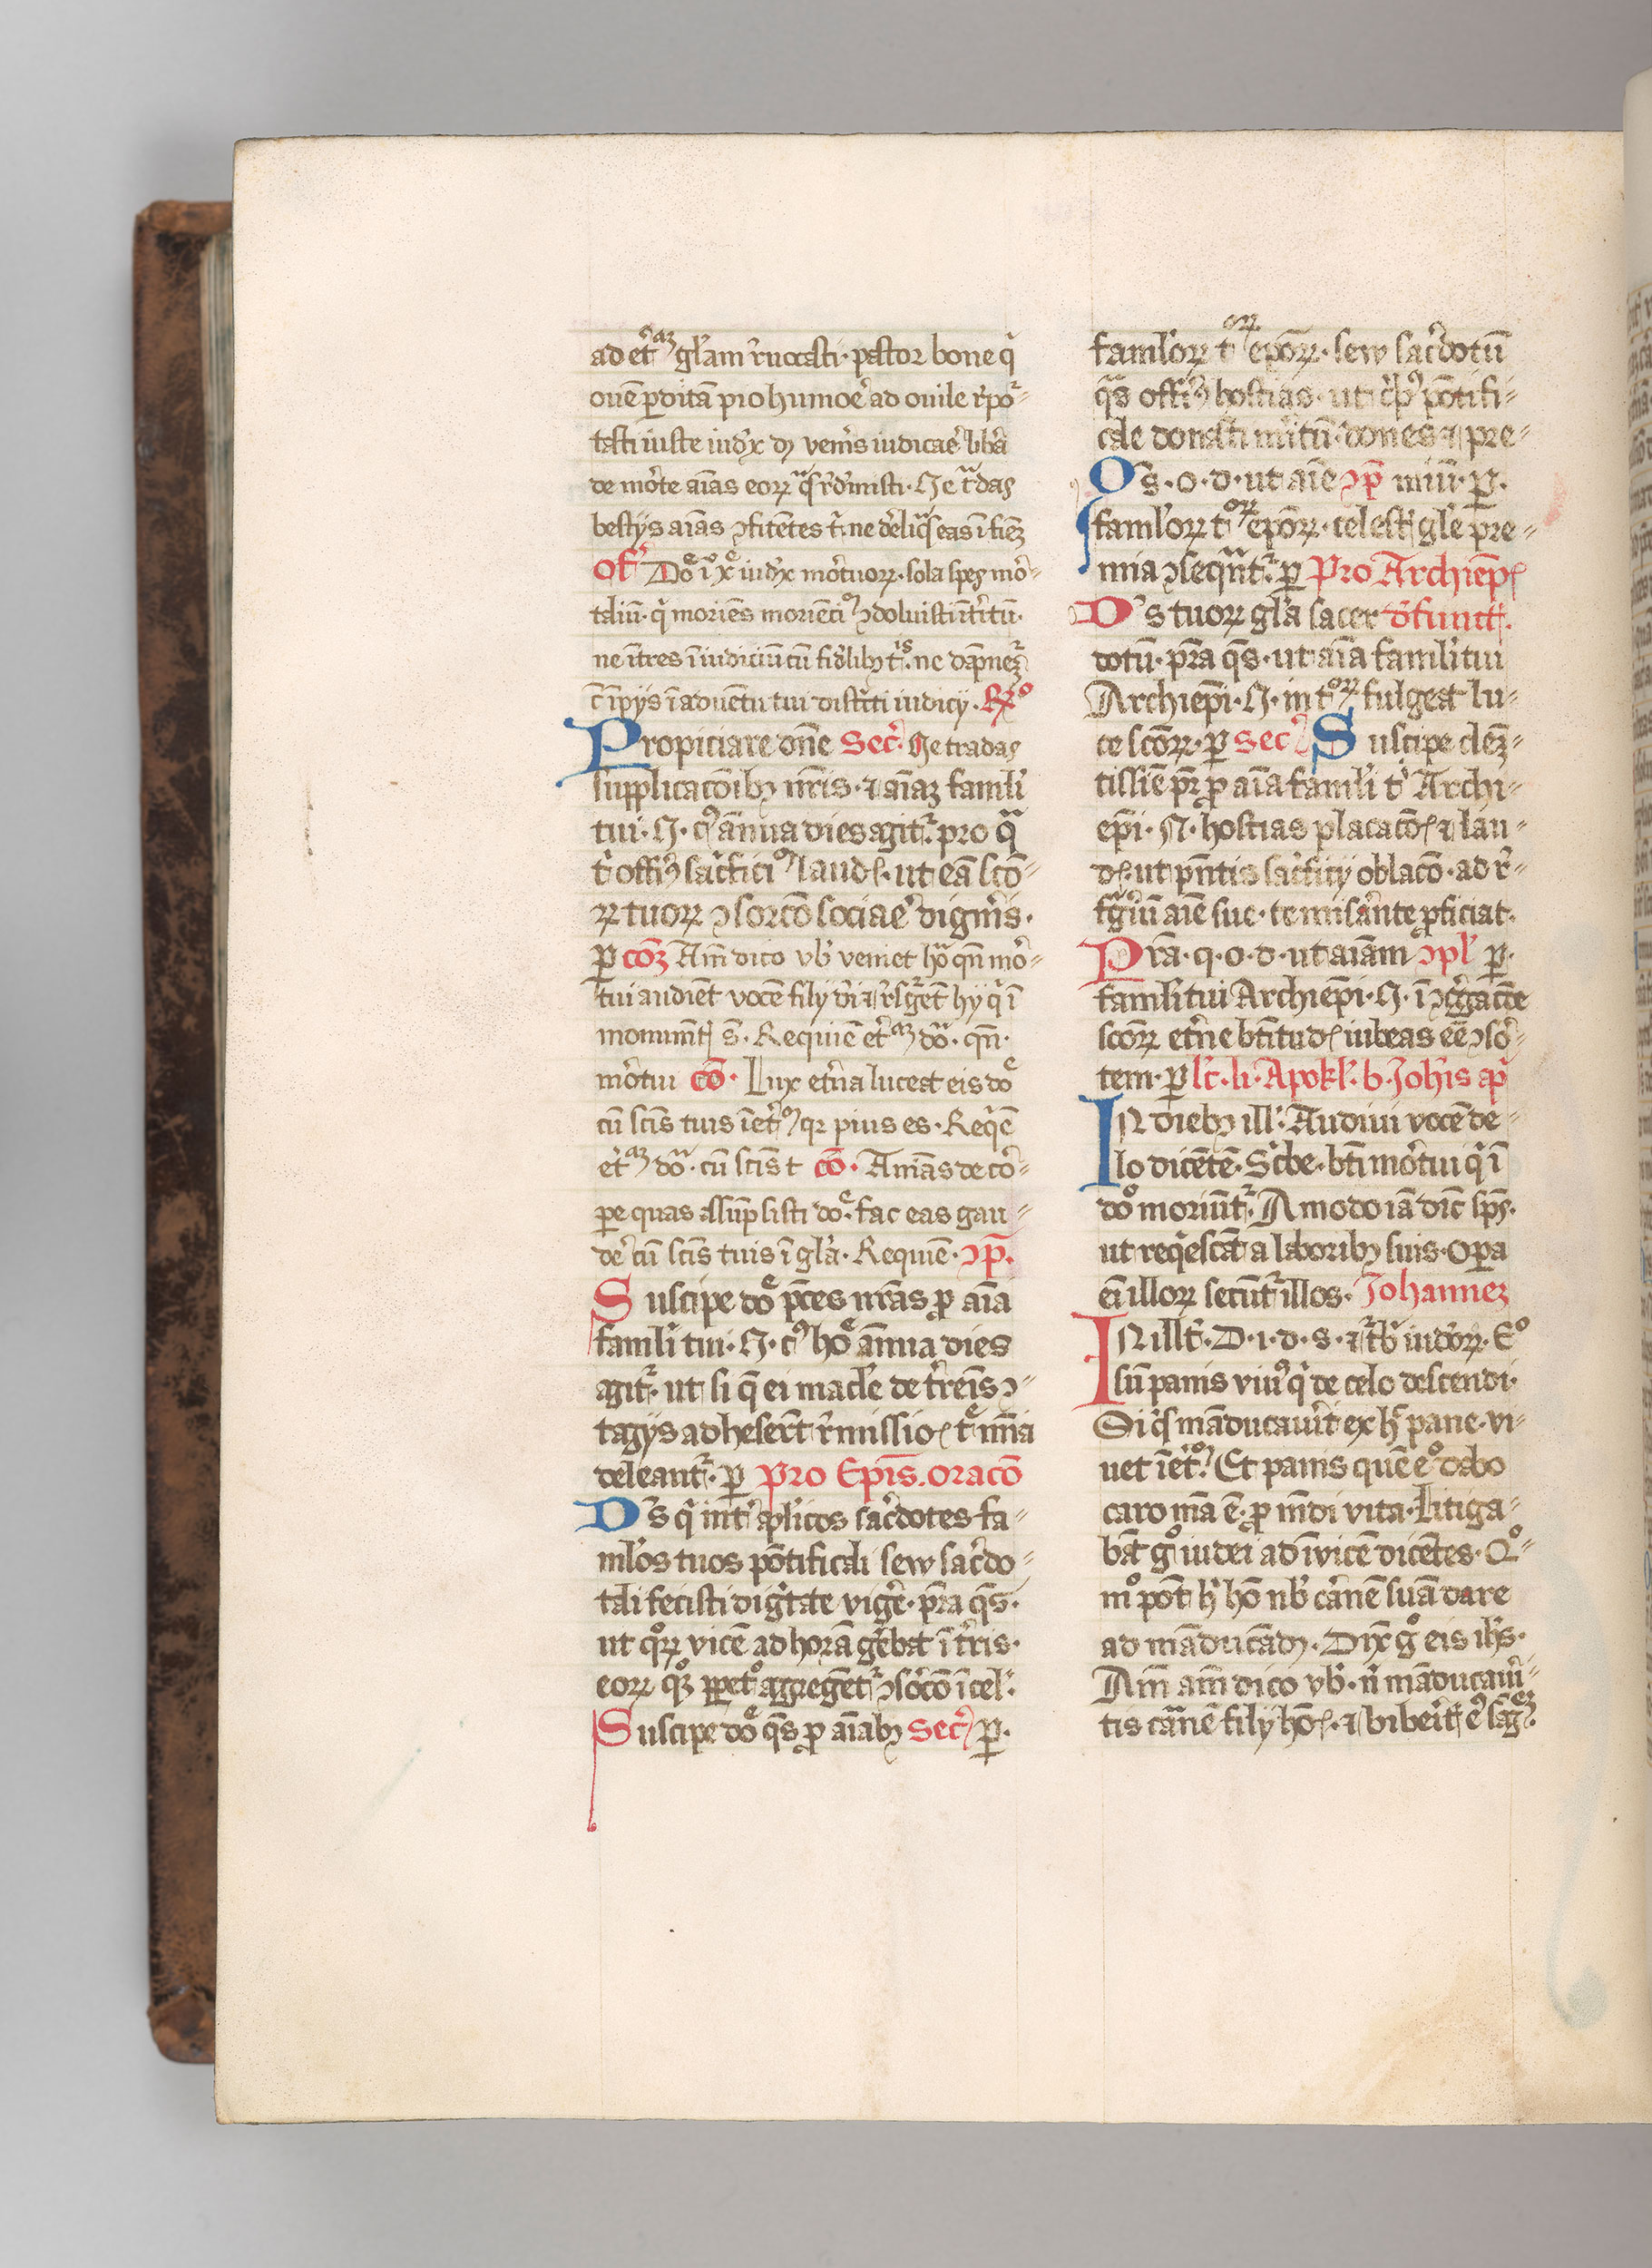 ad et̉aꝫ gl̉am r̉uocasti · pastor bone q̉
ouē ꝑditā pio humoẽ ad ouile r̉por̄-
tasti iuste iudx̉ dꝫ ven̉is iudicaẽ lib̉a
de mõte aīas eoꝝ q̉s r̉dīmisti · Ne tr̉das
bestijs aīas ↄfitētes t̉ ne der̉liq̉s eas ī finē
Of̉ Dōe ih̄u xp̄e iudx̉ mor̉tuoꝝ · sola spes mor̉-
taliū · q̉ moriēs morienciꝰ ↄdoluisti īt̉itū ·
ne īt̉res ī iudiciū cū fidelibꝫ t̉s · ne dāpnet̉
c̄ īpijs ī aduētu tui dist̉cti iudicij · Rꝫ̊
Propiciare dn̄e Sec̉ · Ne tradas
supplicacōibꝫ nr̄is · ⁊ aīaꝫ famĺi
tui · N · cꝰ ānua dies agit̉ · pro qª
t̉ offim̉ꝰ sac̉ficiꝰ laud̉ · ut eā scō-
ꝝ tuoꝝ ↄsorcō sociaẽ dign̉is ·
ꝑ cōꝫ Am̄ dico vb̉ veniet hoª qn̄ mor̉-
tui audiēt vocē filij dei ⁊ r̉sg̉ēt hij q̉ ī
monumēt̉ s̄ · Requiē et̉aꝫ doª · qn̄ ·
mor̉tui cō · Lux et̉na luceat eis dōe
cū scīs tuis īet̉ꝰ qꝛ pius es · Req̉ē
et̉aꝫ doª · cū scīs t cō · Aīas de cor̉-
pe quas assūpsisti dōe · fac eas gau-
dẽ cū scīs tuis ī gl̉a · Requiē · ↄp̄ ·
Suscipe dōe p̄ces nr̄as ꝓ aīa
famĺi tui · N · cꝰ hoe ānua dies
agit̉ · ut si q̄ ei macl̉e de t̉reīs ↄ-
tagijs adheser̄t r̉missiōe tue mīa
deleant̉ · ꝑ Pro Epīs · oracō
Ds̉ q̉ int̉ ap̉licos sac̉dotes fa-
ml̉os tuos pōtificali sew sac̉do-
tali fecisti dig̉tate vigẽ · pr̄a qs̄ ·
ut q̊ꝝ vicē ad horā ger̉bāt ī t̉ris ·
eoꝝ qꝫ ꝑpet̊ aggregēt̉ ↄsor̉cō ī cel̉ ·
Suscipe dōe qs̄ ꝓ aīabꝫ Sec̉ ꝑ ·
faml̉oꝝ t̊ꝝ epōꝝ · sew sac̉dotū
qªs offim̉ꝰ hostias · ut q̉bꝰ pōtifi-
cale donasti m̉itū · dones ⁊ pre-
Qs · o · d · ut aīe ↄp̄ miū · ꝑ ·
faml̉oꝝ t̊ꝝ epōꝝ · celest̉ gl̉e pre-
mia ↄseqªnt̉ · ꝑ Pro Archiep̄
Ds̉ tuoꝝ gl̉a sacer defunct̉ ·
dotū · pr̄a qs̄ · ut aīa famĺi tui
Archiep̄i · N · in t̊ꝝ fulgeat lu-
ce scōꝝ · ꝑ sec̉ Suscipe cleꝫ-
tissīe pr̄ ꝓ aīa famĺi t̉ Archi-
ep̄i · N · hostias placacōe ⁊ lau-
de · ut pn̄tis sac̉ficij oblacō · ad r̉-
frig̉iū aīe sue · te misar̉nte ꝓficiat ·
Pr̄a · q · o · d · ut aīam ↄpl̉ ꝑ ·
famĺi tui Archiep̄i · N · ī ↄg̉gacōe
scōꝝ et̉ne btītud̉ iubeas eē ↄsor̉-
tem · ꝑ lc̄ · li · Apokl̉ · b · Joh̄is ap̄
In diebꝫ ill̉ : Audiui vocē de-
lo dicētē · Sc̉be · bt̄i mor̉tui q̉ ī
dōo moriūt̉ · Amodo iā dic̄ sps̄ ·
ut req̉escāt a laboribꝫ suis · Oꝑa
eī illoꝝ secūt̉ illos · Johannez
In ill̉ t̉ · D · i · d · s · ⁊ t̉b̉ iudeoꝝ · Eº
sū panis viuꝰ q̉ de celo descendi ·
Si q̉s māducauer̉it ex hͦ pane · vi-
uet īet̉ꝰ · Et panis quē eº dabo
caro mª ē · ꝓ mūdi vita · Litiga-
bāt gº iudei ad īvicē dicētes · Qº-
mº pōt h̉ hō nb̉ car̉nē suā dare
ad māducādꝫ · Dix̉ gº eis ih̄s ·
Am̄ am̄ dico vb̉ · n̉ māducaui̊-
tis carnē filij hōis · ⁊ biber̉it̉ eꝰ sāg̉eꝫ ·